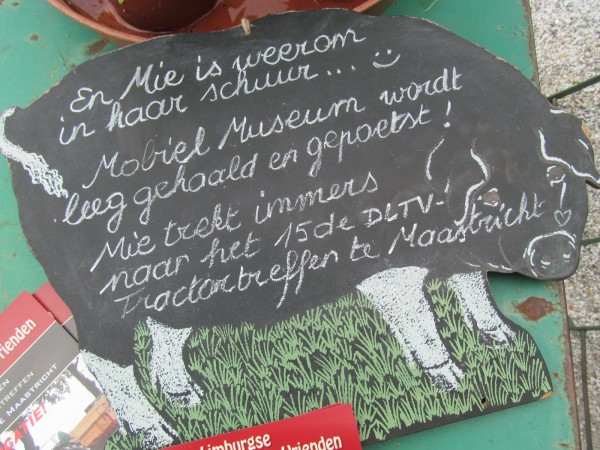 En Mie is weerom
in haar schuur... :)
Mobiel Museum wordt
leeg gehaald en gepoetst!
Mie trekt immers
naar het 15de DLTV-
Tractortreffen te Maastricht
rienden
EN
TREFFEN
E MAASTRICHT
CATIE!
Limburgse
rienden